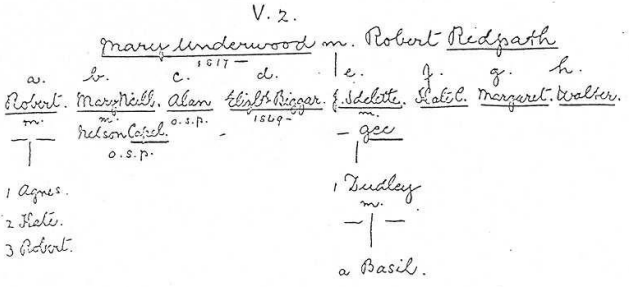 V. 2.
Mary Underwood m. Robert Redpath
1817 —
a. b. c. d. e. f. g. h.
Robert. Mary Neill. Alan Elizth Biggar. J. Idelette. Kate C. Margaret. Walter.
m. m. o.s.p. 1849 - m.
Nelson Capel. - — gee
o.s.p.
1 Agnes. 1 Dudley
2 Kate. m.
3 Robert.
a Basil.